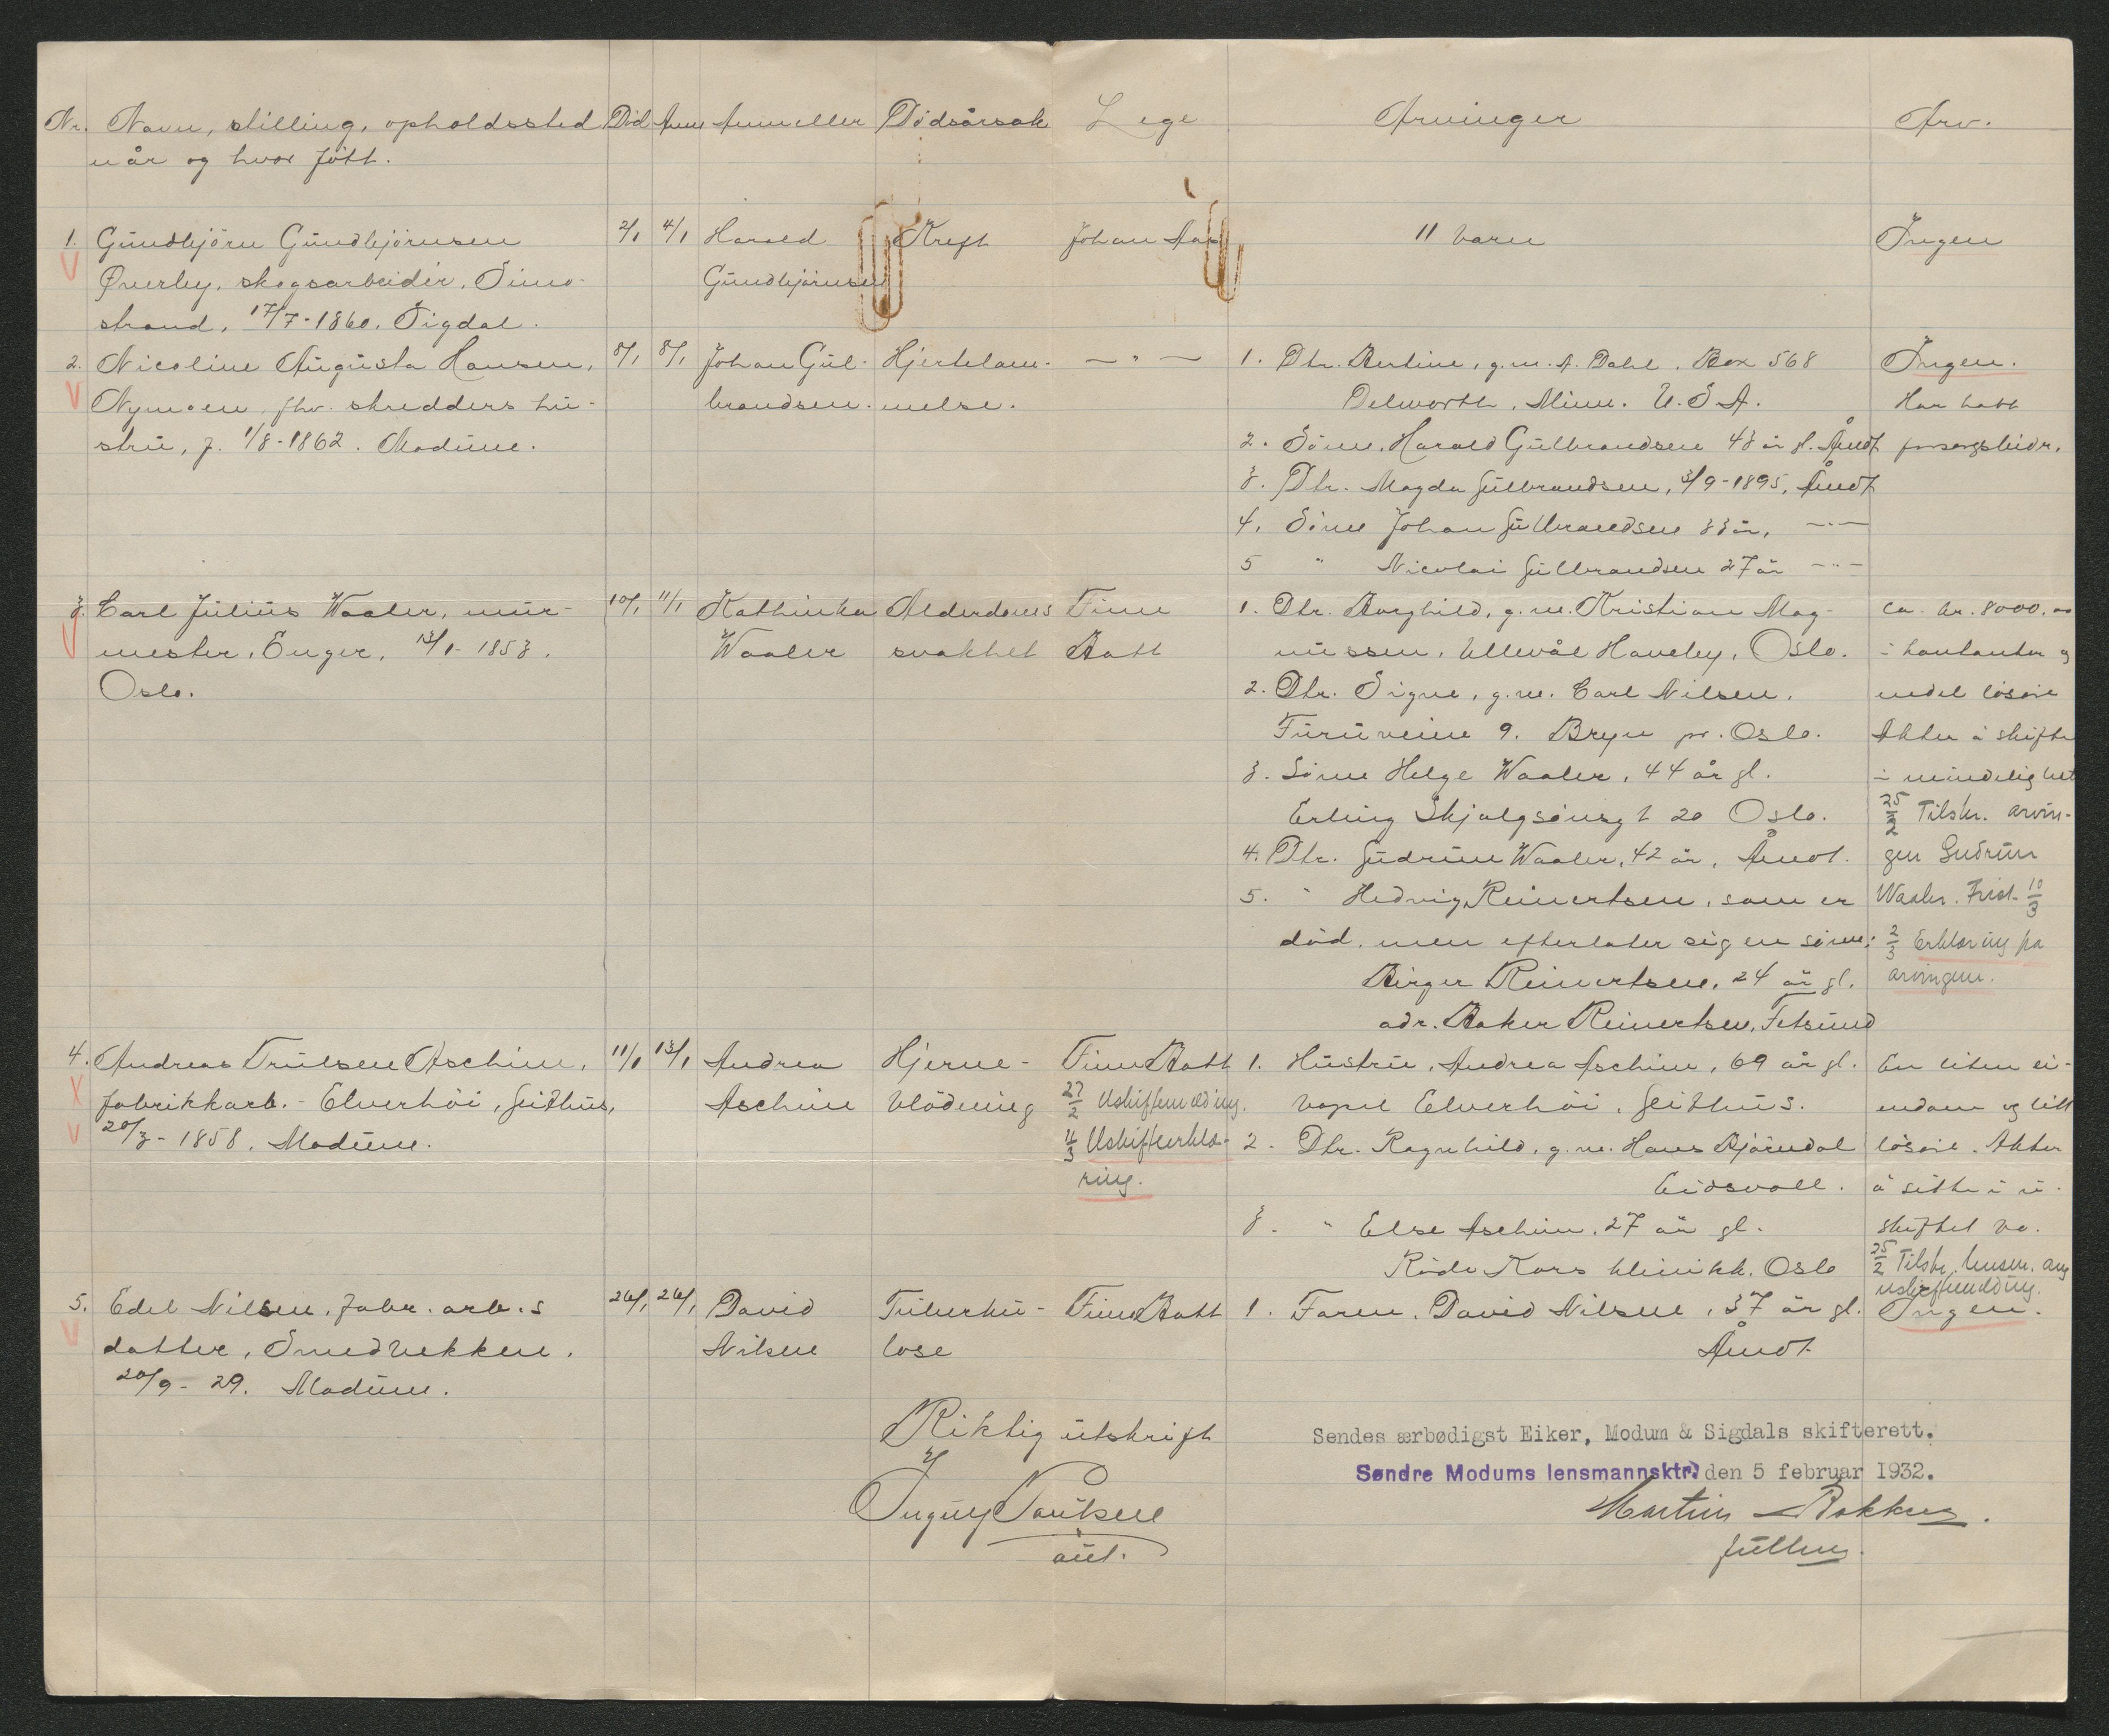 Nr. Navn, stilling, opholdssted Död Anm Anmelder Dödsårsak Lege Arvinger Arv.
når og hvor född.
1. Gundbjörn Gundbjörnsen 2/1 4/1 Harald Kreft Johan Aas 11 barn Ingen
Øverby, skogsarbeider, Simo- Gundbjörnsen
strand, 17/7-1860. Sigdal.
2. Nicoline Augusta Hansen, 8/1 8/1 Johan Gul- Hjertelam- — " — 1. Dtr. Bertine, g.m. A. Dahl, Box 568 Ingen.
Nymoen, fhv. skredders hu- brandsen. melse. Delworth, Minn. U.S.A. Har hatt
stru, f. 1/8-1862. Modum. 2. Sönn, Harald Gulbrandsen 43 år gl. Åmot forsorgsbidr.
3. Dtr. Magda Gulbrandsen, 3/9-1895, Åmot
4. Sönn Johan Gulbrandsen 33 år, —"—
5 " Nicolai Gulbrandsen 27 år —"—
3. Carl Julius Waaler, mur- 10/1 11/1 Kathinka Alderdoms Finn 1. Dtr. Borghild, g.m. Kristian Mag- ca. kr. 8000.00
mester, Enger, 13/1-1853. Waaler svakhet Batt nussen, Ullevål Haveby, Oslo. i kontanter og
Oslo. 2. Dtr. Signe, g.m. Carl Nilsen, endel lösöre
Furuveien 9. Bryn pr. Oslo. Akter å skifte
3. Sönn Helge Waaler, 44 år gl. i mindelighet
Erling Skjalgsönsgt 20 Oslo. 25/2 Tilskr. arvin-
4. Dtr. Gudrun Waaler, 42 år, Åmot. gen Gudrun
5. " Hedvig Reinertsen, som er Waaler. Frist 10/3
död, men efterlater sig en sönn: 2/3 Erklæring fra
Birger Reinertsen, 24 år gl. arvingene.
adr. Baker Reinertsen, Fetsund
4. Andreas Trulsen Aschim, 11/1 13/1 Andrea Hjerne- Finn Batt 1. Hustru, Andrea Aschim, 69 år gl. En liten ei-
fabrikkarb. - Elverhöi, Geithus, Aschim blödning 27/2 Uskiftemelding. bopel Elverhöi, Geithus. endom og litt
20/3-1858. Modum. 4/3 Uskifteerklæ- 2. Dtr. Ragnhild, g.m. Hans Björndal lösöre. Akter
ring. Eidsvoll. å sitte i u-
3. " Else Aschim, 27 år gl. skiftet bo.
Röde Kors klinikk. Oslo 25/2 Tilskr. lensm. ang
uskiftemelding.
5. Edel Nilsen, fabr. arb.s 26/1 26/1 David Tuberku- Finn Batt 1. Faren, David Nilsen, 37 år gl. Ingen.
datter, Smedbekken. Nilsen lose Åmot
20/9-29. Modum.
Riktig utskrift
Sendes ærbødigst Eiker, Modum & Sigdals skifterett.
Søndre Modums lensmannsktr. den 5 februar 1932.
Paulsen Martin
aut. fullm.